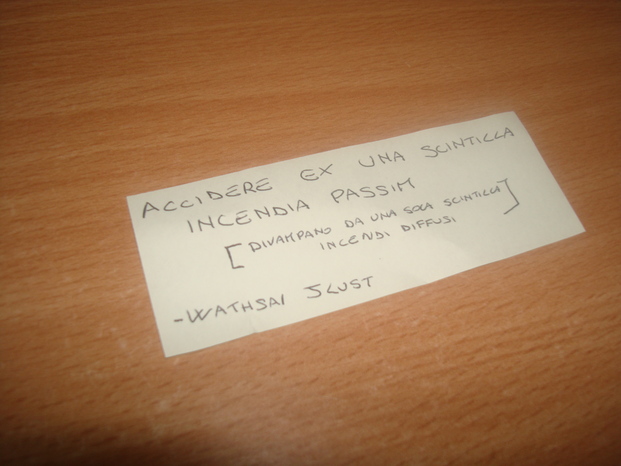 ACCIDERE EX UNA SCINTILLA
INCENDIA PASSIM
[DIVAMPANO DA UNA SOLA SCINTILLA
INCENDI DIFFUSI]
-WATHSAI JLUST